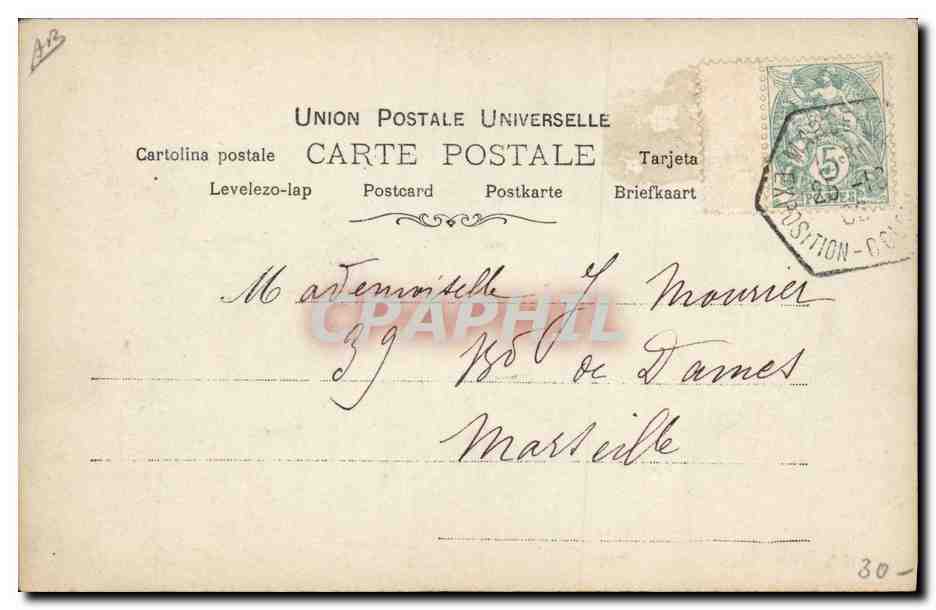 AB
UNION POSTALE UNIVERSELLE
Cartolina postale CARTE POSTALE Tarjeta
Levelezo-lap Postcard Postkarte Briefkaart
5c
POSTES
25 -12
EXPOSITION-
Mademoiselle J Mourier
CPAPHIL
39 Bd de Dames
Marseille
30-